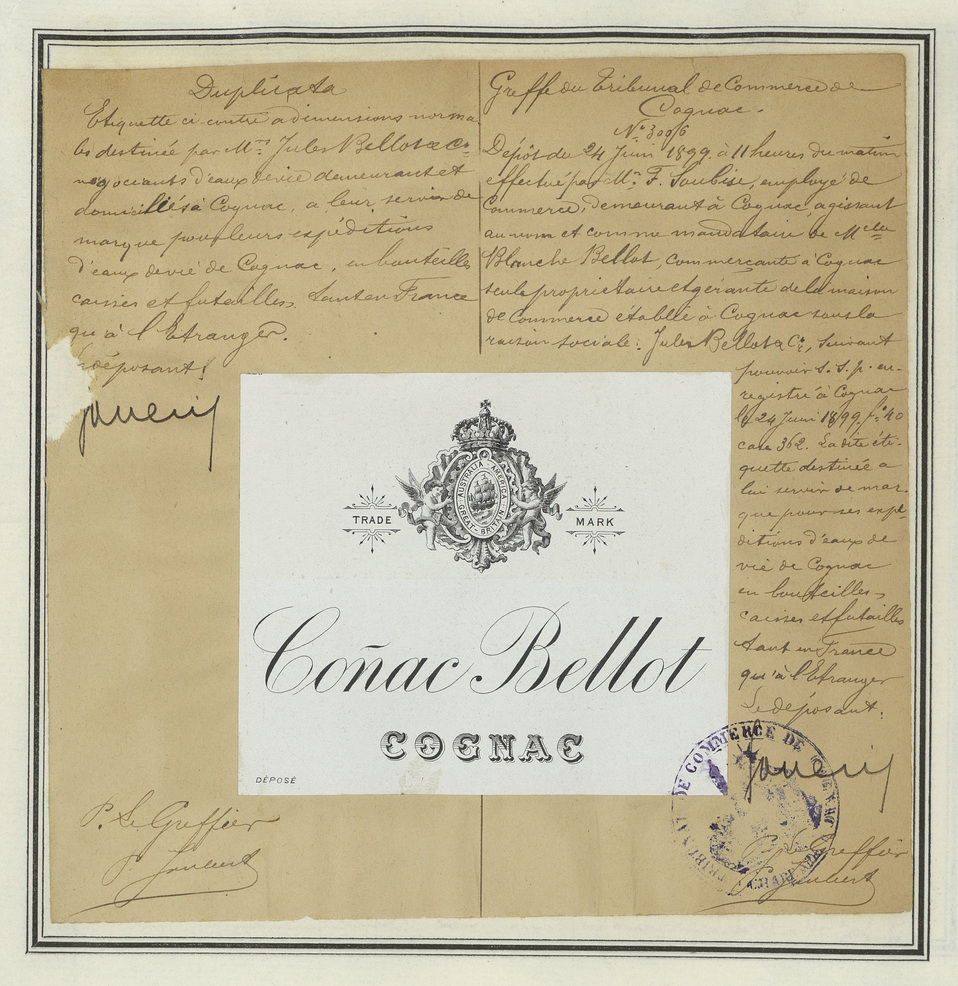 Duplicata
Etiquette ci contre a dimensions norma
les destinée par Mrs Jules Bellot & Cie
négociants d'eaux de vie demeurant et
domiciliés à Cognac, a leur servir de
marque pour leurs expéditions
d'eaux de vie de Cognac, en bouteilles
caisses et futailles, tant en France
qu'à l'Etranger.
déposant
Greffe du Tribunal de Commerce de
Cognac.
Dépôt du 24 Juin 1899 à 11 heures du matin
effectué par Mr. F. Soubise, employé de
Commerce, demeurant à Cognac, agissant
au nom et comme mandataire de Melle
Blanche Bellot, commerçante à Cognac
seule propriétaire et gérante de la maison
de Commerce établie à Cognac sous la
raison sociale: Jules Bellot & Ce, suivant
pouvoir s.s.p. en-
registré à Cognac
le 24 Juin 1899, fo 40
case 362. La dite éti-
quette destinée a
lui servir de mar-
que pour ses expé-
ditions d'eaux de
vie de Cognac
en bouteilles,
caisses et futailles
tant en France
qu'à l'Etranger
Le déposant:
AUSTRALIA - AMERICA
GREAT-BRITAIN
TRADE MARK
Coñac Bellot
COGNAC
DÉPOSÉ
P. Le Greffier
P. Le Greffier
TRIBUNAL DE COMMERCE DE COGNAC